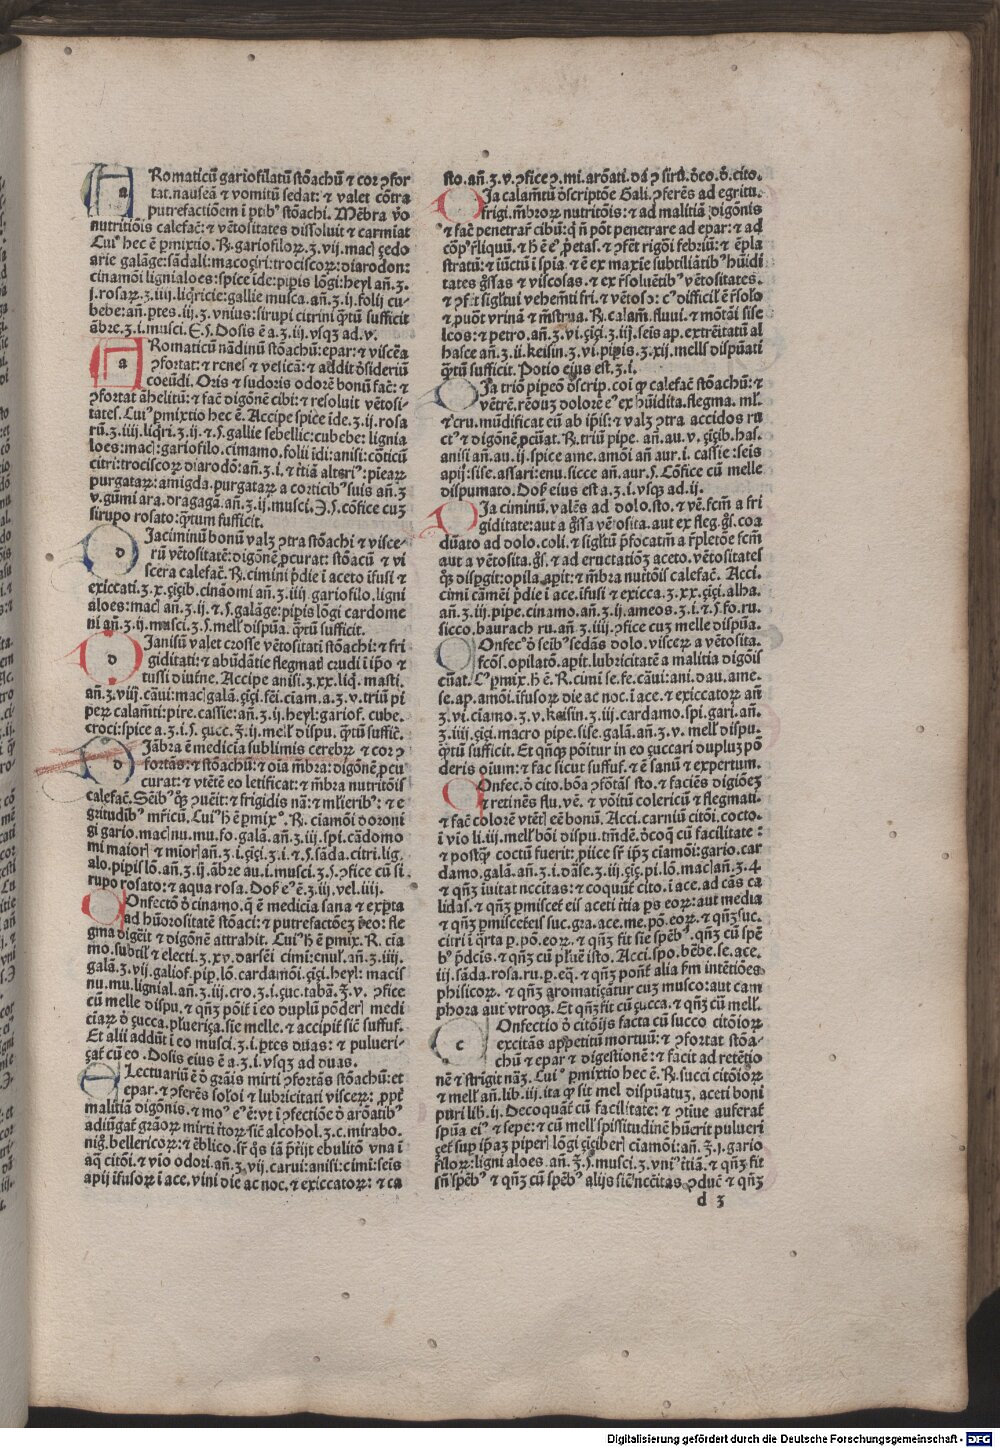 ARomaticū gariofilatū stōachū ⁊ cor ꝯfor
tat.nauseā ⁊ vomitū sedat: ⁊ valet cōtra
putrefactiōem ī ptibꝰ stōachi. Mēbra v̄o
nutritiōis calefac̄: ⁊ vētositates dissoluit ⁊ carmīat
Cuiꝰ hec ē ꝑmixtio. ℞. gariofiloꝝ.ʒ.vij.mac̨ çedo
arie galāge:sādali:macoçiri:trociscoꝝ:diarodon:
cinamōi lignialoes:spice īde:pipis lōgi:heyl añ.ʒ.
j.rosaꝝ.ʒ.iiij.liq̄ricie:gallie musca.añ.ʒ.ij.folij cu-
bebe:añ.ptes.iij.ʒ.vnius:sirupi citrini q̄tū sufficit
ābre.ʒ.i.musci.E.S.Dosis ē a.ʒ.i.vsqꝫ ad.v.
ARomaticū nādinū stōachū:epar:⁊ viscēa
ꝯfortat:⁊ renes ⁊ vesicā:⁊ addit ꝺ̄sideriū
coeūdi. Oris ⁊ sudoris odorē bonū fac̄:⁊
ꝯfortat āhelitū:⁊ fac̄ digōnē cibi:⁊ resoluit vētosi-
tates. Cuiꝰ ꝑmixtio hec ē. Accipe spice īde.ʒ.ij.rosa
rū.ʒ.iiij.liq̄ri.ʒ.ij.⁊.ꝭ.gallie sebellic:cubebe:lignia
loes:mac̨:gariofilo.cimamo.folii īdi:anisi:cōticū
citri:trociscoꝝ diarodō:añ.ʒ.i.⁊ t̄tiā altériꝰ:pīeaꝝ
purgataꝝ:amigda.purgataꝝ a corticibꝰ suis añ.ʒ
v.gūmi ara.dragagā.añ.ʒ.ij.musci.Ɔ.ꝭ.cōfice cuꝫ
sirupo rosato:q̄tum sufficit.
DIaciminū bonū valꝫ ꝯtra stōachi ⁊ visce-
rū vētositatē:digōnē ꝓcurat:stōacū ⁊ vi
scera calefac̄. ℞.cimini p̄die ī aceto īfusi ⁊
exiccati.ʒ.x.çiçib.cināomi añ.ʒ.iiij.gariofilo.ligni
aloes:mac̨ añ.ʒ.ij.⁊.ꝭ.galāge:pipis lōgi cardome
ni añ.ʒ.ij.musci.ʒ.ꝭ.mell̄ dispūa. q̄tū sufficit.
DIanisū valet crosse vētositati stōachi:⁊ fri
giditati:⁊ abūdātie flegmat̄ crudi ī ip̄o ⁊
tussi diutīne. Accipe anisi.ʒ.xx.liq̄. masti.
añ.ʒ.viij.cāui:mac̨ galā.çiçi.fēi.cīam.a.ʒ.v.triū pi
peꝝ calam̄ti:pire.cassie:añ.ʒ.ij.heyl:gariof.cube.
croci:spice a.ʒ.i.ꝭ.çucc.℥.ij.mell̄ dispu. q̄tū suffic̄.
DIābra ē medicīa sublimis cerebꝝ ⁊ cor ꝯ
fortās:⁊ stōachū:⁊ oīa m̄bra:digōnē ꝓcu
curat:⁊ vtētē eo letificat:⁊ m̄bra nutritōis
calefac̄. Sēibꝰ qꝫ ꝯuēit:⁊ frigidis nā:⁊ mlieribꝰ:⁊ e
gritudībꝰ mr̄icū. Cuiꝰ h̄ ē ꝑmixꝰ. ℞. cīamōi doroni
gi gario.mac̨ nu.mu.fo.galā.añ.ʒ.iij.spi.cādomo
mi maior̨ ⁊ mīor̨ añ.ʒ.i.çiçi.ʒ.i.⁊.ꝭ.sāda.citri.lig.
alo.pipis lō.añ.ʒ.ij.ābre au.i.musci.ʒ.ꝭ.ꝯfice cū si.
rupo rosato:⁊ aqua rosa. Doſ̄ eꝰ ē.ʒ.iij.vel.iiij.
COnfectō ꝺ̄ cinamo.q̄ ē medicīa sana ⁊ exꝑta
ad hūorositatē stōaci:⁊ putrefactōeꝫ p̄eo:fle
gma digēit ⁊ digōnē attrahit. Cuiꝰ h̄ ē ꝑmix. ℞. cīa
mo.subtil̄ ⁊ electi.ʒ.xv.darsēi cimi:enul̄.añ.ʒ.iiij.
galā.ʒ.vij.galiof.pip.lō.cardamōi.çiçi.heyl:macis
nu.mu.lignial.añ.ʒ.iij.cro.ʒ.i.çuc.tabā.℥.v. ꝯfice
cū melle dispu.⁊ qn̄ꝫ pōit̄ ī eo duplū pōder̨ medi
cīaꝝ ꝺ̄ çucca.plueriça.sic̄ melle.⁊ accipit̄ sic̄ suffuf.
Et alii addūt ī eo musci.ʒ.i.ptes duas:⁊ pulueri-
çat̄ cū eo.Dosis eius ē a.ʒ.i.vsqꝫ ad duas.
ELectuariū ē ꝺ̄ grāis mirti ꝯfortās stōachū:et
epar.⁊ ꝯferēs solōi ⁊ lubricitati visceꝝ: ꝓpt̄
malitiā digōnis.⁊ moꝰ eꝰ ē:vt ī ꝯfectiōe ꝺ̄ arōatibꝰ
adiūgat̄ grāoꝝ mirti t̄toꝝ sic̄ alcohol.ʒ.c.mirabo.
nig̃.bellericoꝝ:⁊ ēblico.sr̄ q̄s iā p̄t̄ijt ebulitō vna ī
aq̄ citōi.⁊ vīo odori.añ.ʒ.vij.carui:anisi:cimi:seis
apij īfusoꝝ ī ace.vini die ac noc.⁊ exiccatoꝝ:⁊ ca
sto.añ.ʒ.v.ꝯfice ꝯ.mi.arōati.dā ꝯ sirū.ꝺ̄eo.ꝺ̄.cito.
DIa calam̄tū ꝺ̄scriptōe Gali.ꝯferēs ad egritu.
frigi.m̄broꝝ nutritōis:⁊ ad malitiā digōnis
⁊ fac̄ penetrar̄ cibū:q̄ n̄ pōt penetrare ad epar:⁊ ad
cōp̄.r̄liquū.⁊ h̄ ē eꝰ ꝓ̄etas.⁊ ꝯfēt rigōi febriū:⁊ ēpla
stratū:⁊ iūctū ī spīa.⁊ ē ex maxīe subtiliātibꝰ hūidi
tates g̃ssas ⁊ viscosas.⁊ ex r̄soluētibꝰ vētositates.
⁊ ꝯf̄t sigl̄tui vehem̄ti fri.⁊ vētosꝯ: cꝰ difficil̄ ē r̄solō
⁊ ꝓuōt vrinā ⁊ m̄strua. ℞. calam̄. fluui.⁊ mōtāi sise
leos:⁊ petro.añ.ʒ.vi.çiçi.ʒ.iij.seis ap.extrēitatū al
hasce añ.ʒ.ii.keisin.ʒ.vi.pipis.ʒ.xij.mell̄s dispūati
q̄tū sufficit. Potio eius est.ʒ.i.
DIa triō pipeō ꝺ̄scrip.coi qꝫ calefac̄ stōachū:⁊
vētrē.rēouꝫ dolorē eꝰ ex hūidita.flegma. ml̄.
⁊ cru.mūdificat eū ab ip̄is:⁊ valꝫ ꝯtra accidos ru
ctꝰ ⁊ digōnē ꝓcūat. ℞. triū pipe. añ.au.v.çiçib.has.
anisi añ.au.ij.spice ame.amōi añ aur.i. cassie:seis
apij:sise.assari:enu.sicce añ.aur.ꝭ. Cōfice cū melle
dispumato.Doſ̄ eius est a.ʒ.i.vsqꝫ ad.ij.
DIa ciminū.valēs ad dolo.sto.⁊ vē.fcm̄ a fri
giditate:aut a g̃ssa vētosita.aut ex fleg.g̃s.coa
dūato ad dolo.coli.⁊ sigl̄tū p̄focatm̄ a r̄pletōe fcm̄
aut a vētosita.g̃s.⁊ ad eructatiōꝫ aceto.vētositates
qꝫ disꝑgit:opila.aꝑit:⁊ m̄bra nutitōis calefac̄. Acci.
cimi cāmēi p̄die ī ace.īfusi ⁊ exicca.ʒ.xx.çiçi.alha.
añ.ʒ.iij.pipe.cinamo.añ.ʒ.ij.ameos.ʒ.i.⁊.ꝭ.fo.ru.
sicco.baurach ru.añ.ʒ.iiij.ꝯfice cuꝫ melle dispūa.
COnfecꝰ ꝺ̄ seībꝰ sedās dolo.visceꝝ a vētosita.
fcōs.opilatō.aꝑit.lubricitatē a malitia digōis
cūat. Cꝰ ꝑmix.h̄ ē. ℞.cimi se.fe.cāui:ani.dau.ame.
se.ap.amōi.īfusoꝝ die ac noc.ī ace.⁊ exiccatoꝝ añ
ʒ.vi.cīamo.ʒ.v.keisin.ʒ.iij.cardamo.spi.gari.añ.
ʒ.iiij.çiçi.macro pipe.sise.galā.añ.ʒ.v. mell̄ dispu.
q̄tū sufficit. Et qn̄qꝫ pōitur in eo çuccari dupluꝫ pō
deris oīum:⁊ fac sicut suffuf.⁊ ē sanū ⁊ expertum.
COnfec.ꝺ̄ cito.bōa ꝯfotās sto.⁊ faciēs digiōeꝫ
⁊ retinēs flu.vē.⁊ vōitū colericū ⁊ flegmati.
⁊ fac̄ colorē vtēt̨ eē bonū. Acci.carniū citōi.cocto.
ī vio li.iii.mell̄ bōi dispu.tm̄dē.ꝺ̄coq̄ cū facilitate:
⁊ postqꝫ coctū fuerit:ꝓiice sr̄ ip̄ꝫ cīamōi:gario.car
damo.galā.añ.ʒ.i.dāse.ʒ.iij.çiç.pi.lō.mac̨ añ.ʒ.4
⁊ qn̄ꝫ iuitat nccitas:⁊ coquūt̄ cito.ī ace.ad cās ca
lidas.⁊ qn̄ꝫ ꝑmiscet̄ eis aceti t̄tia ps eoꝝ:aut media
⁊ qn̄ꝫ ꝑmiscet̄ eis suc.gra.ace.me.pō.eoꝝ.⁊ qn̄ꝫ suc.
citri ī q̄rta p.pō.eoꝝ.⁊ qn̄ꝫ fit sīe sp̄ebꝰ.qn̄ꝫ cū spē
bꝰ p̄dcis.⁊ qn̄ꝫ cū pl̄uē isto. Acci.spo.bēbe.se.ace.
iij.sāda.rosa.ru.p.eq̄.⁊ qn̄ꝫ pont̄ alia fm intētiōeꝫ
phisicoꝝ. ⁊ qn̄ꝫ aromatiçātur cuꝫ musco:aut cam
phora aut vtroqꝫ. Et qn̄ꝫ fit cū çucca.⁊ qn̄ꝫ cū mell̄.
COnfectio ꝺ̄ citōijs facta cū succo citōioꝝ
excitās appetitū mortuū:⁊ ꝯfortat stōa-
chū ⁊ epar ⁊ digestionē:⁊ facit ad retētio
nē ⁊ strīgit nāꝫ. Cuiꝰ ꝑmixtio hec ē. ℞. succi citōioꝝ
⁊ mell̄ añ.lib.iij.ita qꝫ sit mel dispūatuꝫ.aceti boni
puri lib.ij.Decoquāt̄ cū facilitate:⁊ ꝯtiue auferat̄
spūa eiꝰ ⁊ sepe:⁊ cū mell̄ spissitudinē hūerit pulueri
çet̄ sup ip̄aꝫ piper̨ lōgi çiçiber̨ cīamōi:añ.℥.j.gario
filoꝝ:ligni aloes.añ.℥.ꝭ.musci.ʒ.vniꝰ t̄tiā.⁊ qn̄ꝫ fit
sn̄ sp̄ebꝰ ⁊ qn̄ꝫ cū sp̄ebꝰ alijs sic̄ nccitas ꝯducc̄ ⁊ qn̄ꝫ
d 3
Digitalisierung gefördert durch die Deutsche Forschungsgemeinschaft - DFG